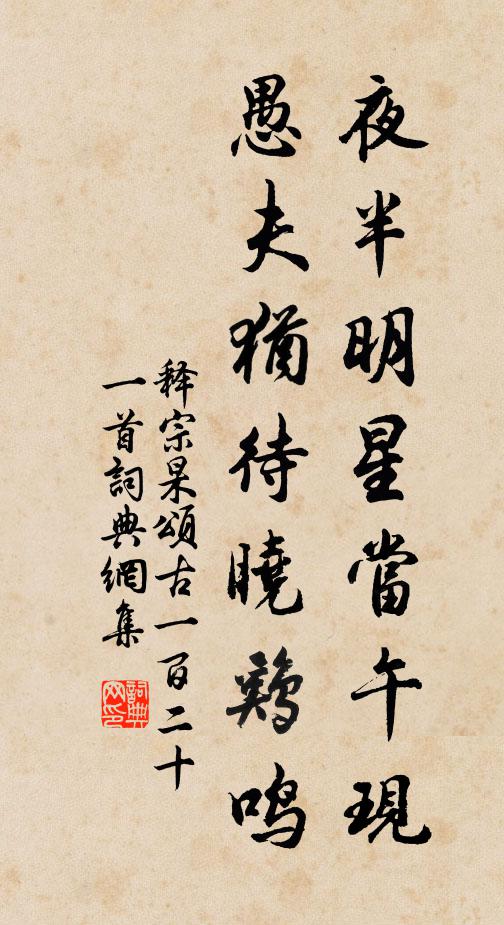 夜半明星當午現
愚夫猶待曉鷄鳴
释宗杲頌古一百二十
一首詞典網集
詞典
网印